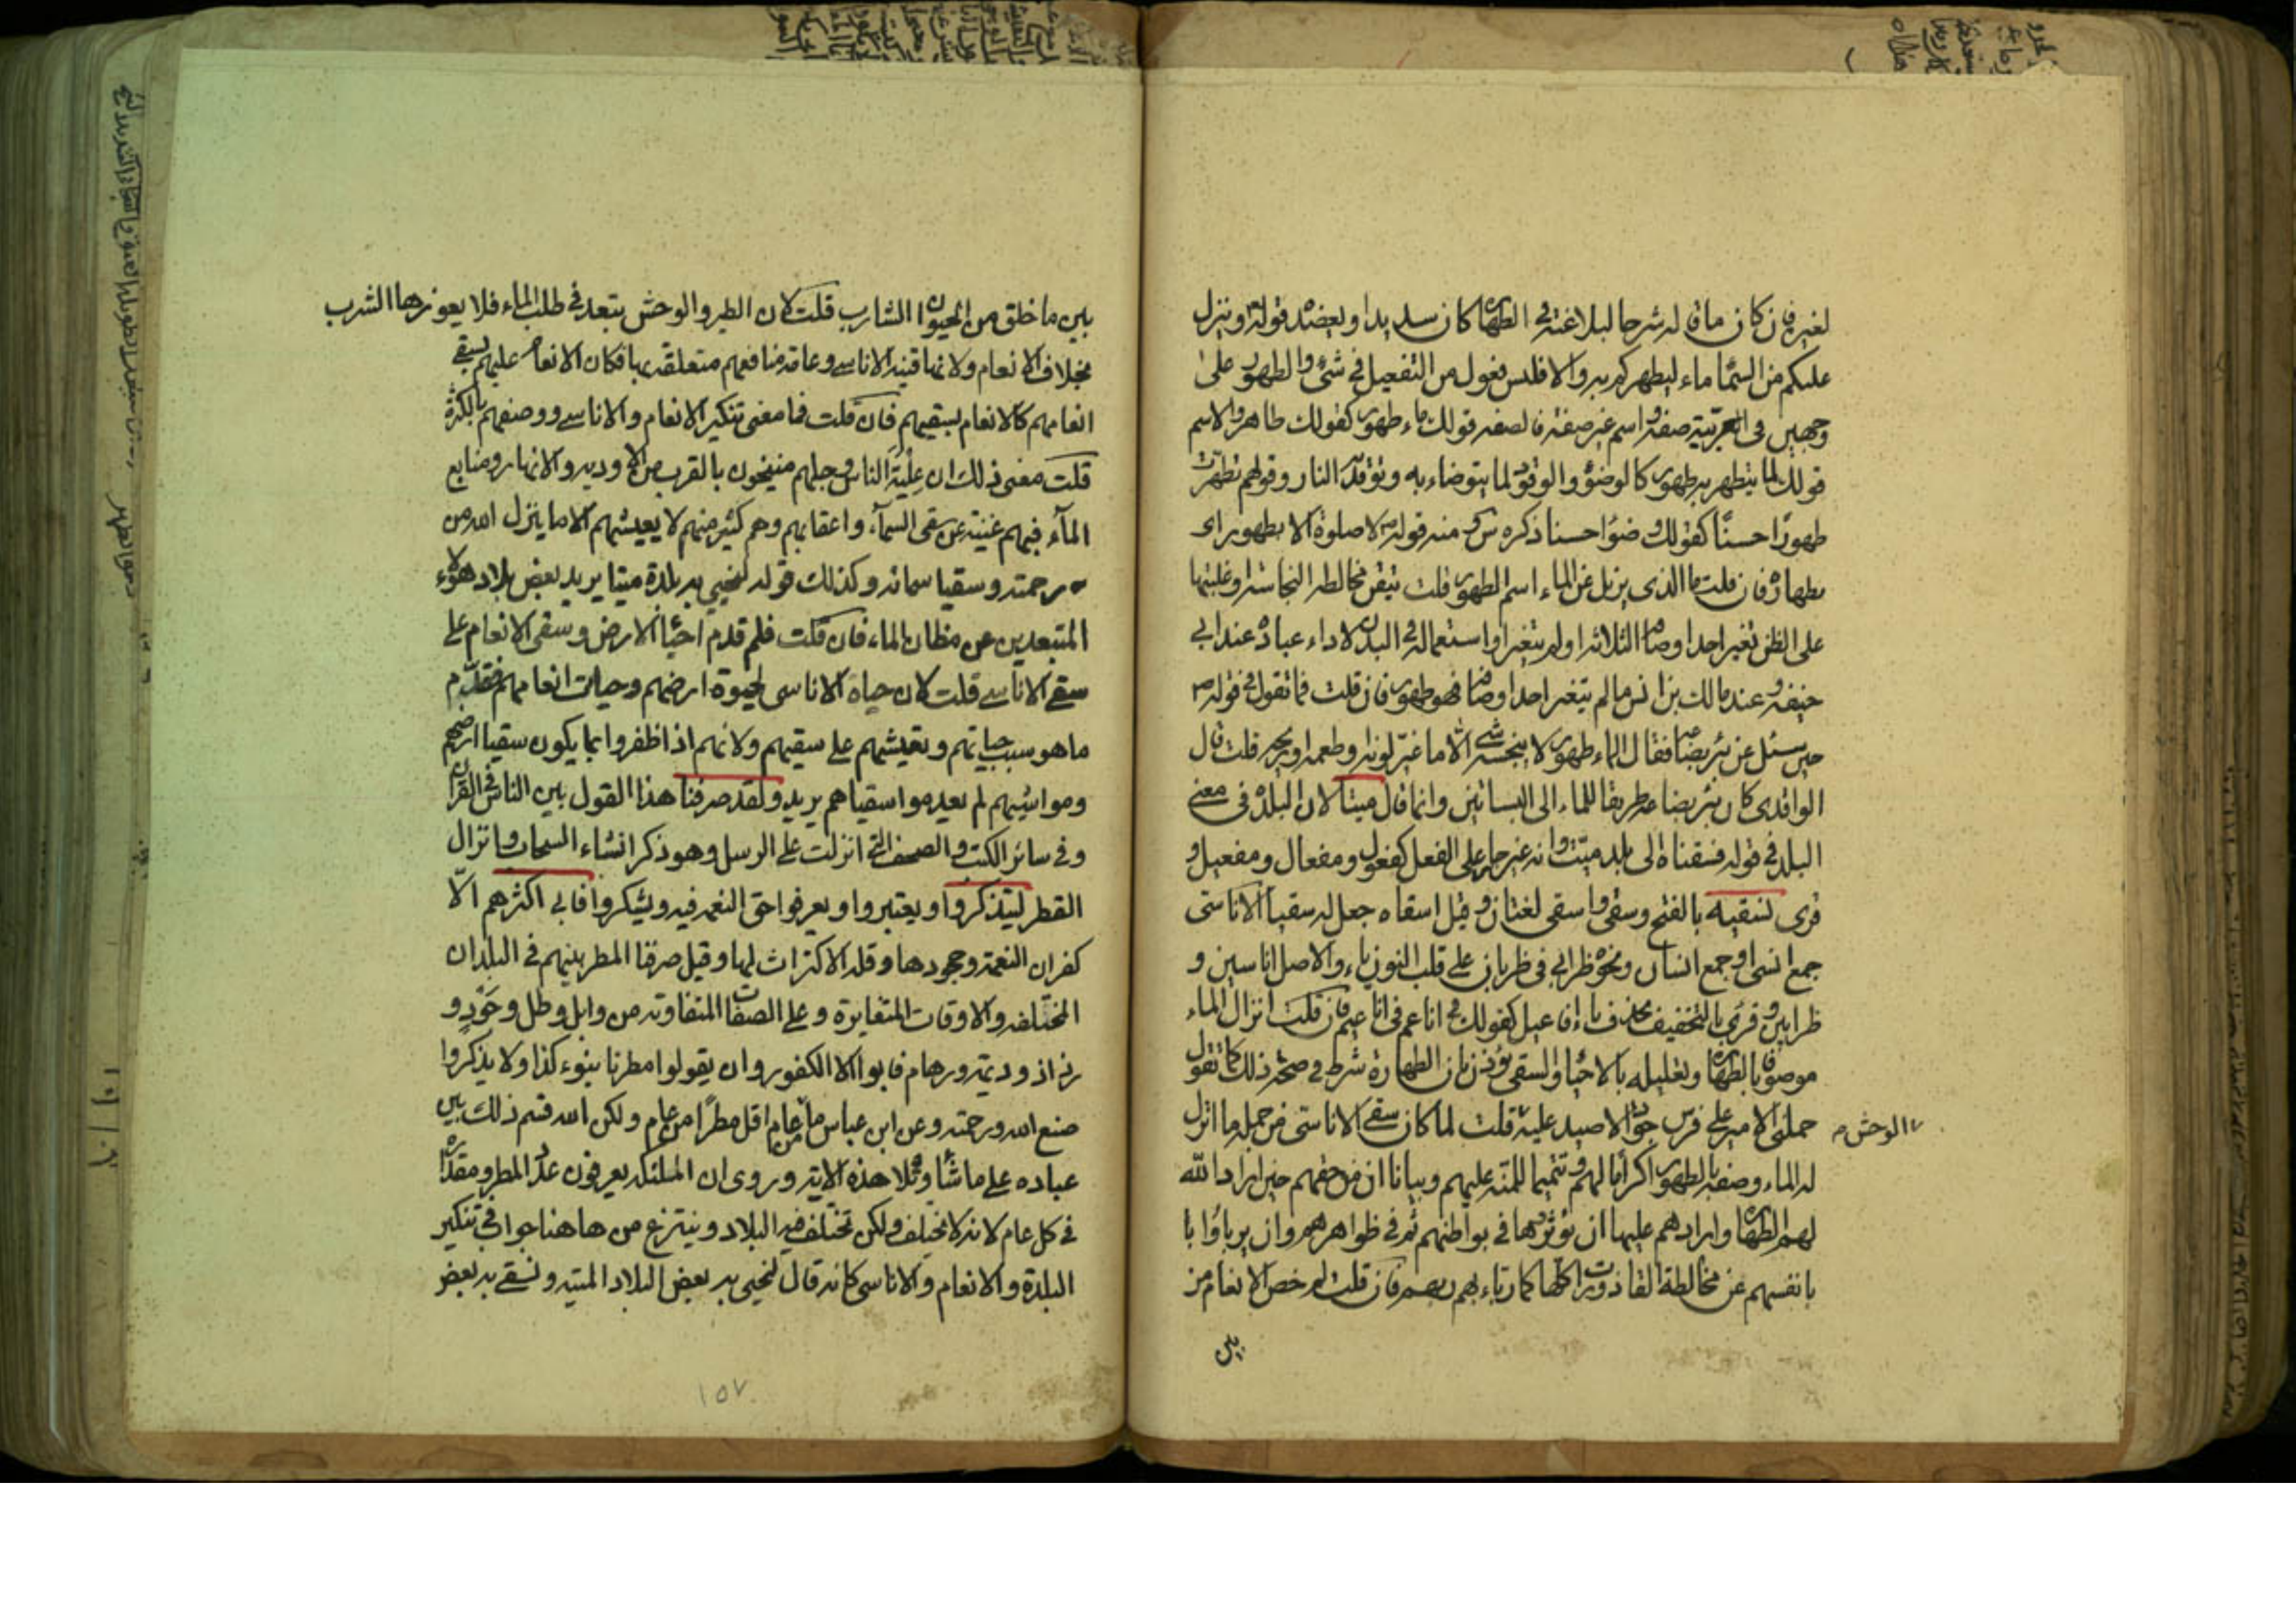 لغيره فان كان ما قاله شرحا لبلاغته في الطهارة كان سديدا ويعضده قوله وينزل
عليكم من السماء ماء ليطهركم به والا فليس فعول من التفعيل في شئ والطهور على
وجهين في العربية صفة واسم غير صفة فالصفة قولك ماء طهور كقولك طاهر والاسم
قولك لما يتطهر به طهور كالوضوء والوقود لما يتوضاء به وتوقد به النار وقولهم تطهرت
طهورًا حسنًا كقولك وضوءا حسنا ذكره س ومنه قوله لا صلوة الا بطهور اى
بطهارة فان قلت ما الذى يزيل عن الماء اسم الطهور قلت تيقن مخالطة النجاسة او غلبتها
على الظن تغير احد اوصافه الثلاثة او لم يتغير او استعماله في البدن لاداء عبادة عند ابي
حنيفة وعند مالك بن انس ما لم يتغير احد اوصافه فهو طهور فان قلت فما تقول في قوله ص
حين سئل عن بئر بضاعة فقال الماء طهور لا ينجسه شئ الا ما غيّر لونه او طعمه او ريحه قلت قال
الواقدى كان بئر بضاعة طريقا للماء الى البساتين وانما قال ميتا لان البلدة في معنى
البلد في قوله فسقناه الى بلد ميّت وانه غير جار على الفعل كفعول ومفعال ومفعيل و
قرى نسقيه بالفتح وسقى واسقى لغتان وقيل اسقاه جعل له سقيا الاناسى
جمع انسى او جمع انسان ونحوه ظرابي في ظربان على قلب النون ياء والاصل اناسين و
ظرابين وقرئ بالتخفيف بحذف ياء افاعيل كقولك في اناعم في اناعيم فان قلت انزال الماء
موصوفا بالطهارة وتعليله بالاحياء والسقى يؤذن بان الطهارة شرط في صحة ذلك كما تقول
حملنى الامير على فرس جواد لاصيد عليه قلت لما كان سقى الاناسى من جملة ما انزل
له الماء وصفه بالطهور اكراما لهم وتتميما للمنة عليهم وبيانا ان من حقهم حين اراد الله
لهم الطهارة وارادهم عليها ان يؤثروها في بواطنهم ثم في ظواهرهم وان يرباؤا با
بانفسهم عن مخالطة القاذورات كلها كما رباء بهم ربهم فان قلت لم خص الانعام من
الوحش
بين
بين ما خلق من الحيوان الشارب قلت لان الطير والوحش يتبعد في طلب الماء فلا يعوزها الشرب
بخلاف الانعام ولانها قنية الاناسى وعامة منافعهم متعلقة بها فكان الانعام عليهم بسقى
انعامهم كالانعام بسقيهم فان قلت فما معنى تنكير الانعام والاناسى ووصفهم بالكثرة
قلت معنى ذلك ان عِلْيَةَ الناس وجلهم منيخون بالقرب من الاودية والانهار ومنابع
المآء فيهم غنية عن سقى السمآء واعقابهم وهم كثير منهم لا يعيشهم الا ما ينزل الله من
رحمته وسقيا سمائه وكذلك قوله لنحيي به بلدة ميتا يريد بعض بلاد هؤلاء
المتبعدين عن مظان الماء فان قلت فلم قدم احياء الارض وسقى الانعام على
سقى الاناسى قلت لان حياة الاناسى لحيوة ارضهم وحيات انعامهم فقدّم
ما هو سبب حياتهم وتعيشهم على سقيهم ولانهم اذا ظفروا بما يكون سقيا ارضهم
ومواشيهم لم يعدموا سقياهم يريد ولقد صرفنا هذا القول بين الناس في القرآن
وفى سائر الكتب والصحف التي انزلت على الرسل وهو ذكر انشاء السحاب وانزال
القطر ليتذكروا ويعتبروا ويعرفوا حق النعمة فيه ويشكروا فابى اكثرهم الّا
كفران النعمة وجحودها وقلة الاكتراث لها وقيل صرفنا المطر بينهم في البلدان
المختلفة والاوقات المتغايرة وعلى الصفات المتفاوتة من وابل وطل وجَوْدٍ و
رذاذ وديمة ورهام فابوا الا الكفور وان يقولوا مطرنا بنوء كذا ولا يذكروا
صنع الله ورحمته وعن ابن عباس ما من عام اقل مطرًا من عام ولكن الله قسم ذلك بين
عباده على ما شاء وتلا هذه الاية وروى ان الملئكة يعرفون عدد المطر ومقداره
في كل عام لانه لا يختلف ولكن تختلف فيه البلاد وينتزع من هاهنا جواب في تنكير
البلدة والانعام والاناسى كانه قال لنحيي به بعض البلاد الميتة ونسقى به بعض
١٥٧